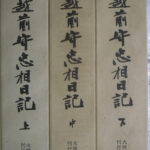 越前守忠相日記 上
越前守忠相日記 中
越前守忠相日記 下